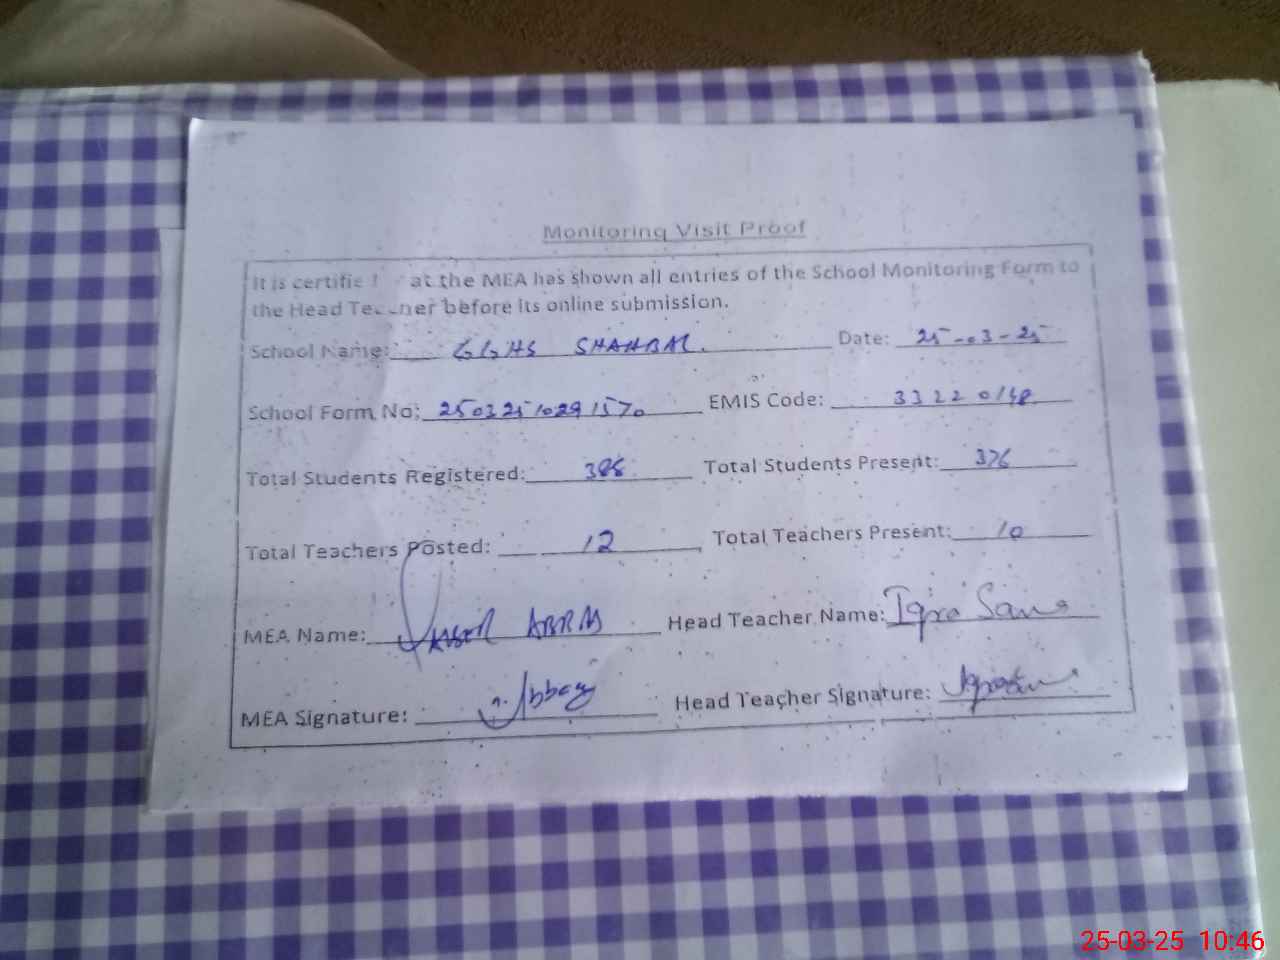 Monitoring Visit Proof
It is certifie at the MEA has shown all entries of the School Monitoring Form to
the Head Teacher before its online submission.
School Name: GGHS SHAHBAZ. Date: 25-03-25
School Form No: 25032510291570 EMIS Code: 33220148
Total Students Registered: Total Students Present: 376
Total Teachers Posted: 12 Total Teachers Present: 10
MEA Name: Head Teacher Name: Iqra Sana
MEA Signature: Head Teacher Signature:
25-03-25 10:46